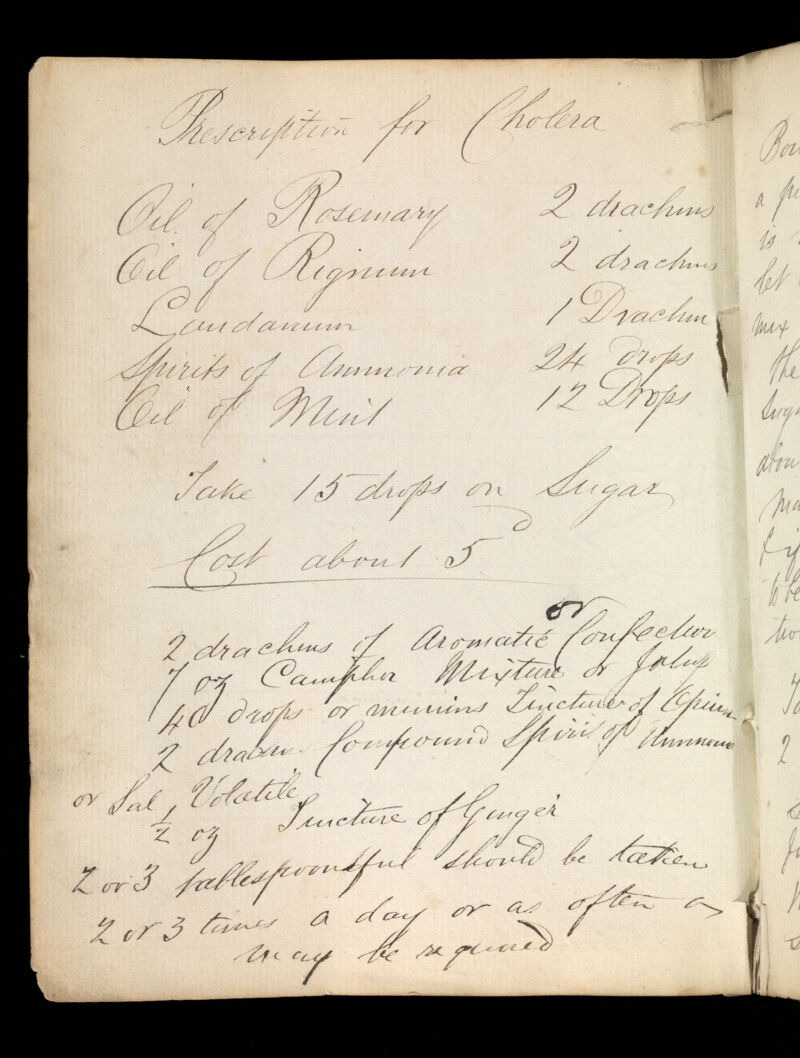 Prescription for Cholera
Oil of Rosemary 2 drachms
Oil of Riginum 2 drachms
Laudanum 1 Drachm
Spirits of Ammonia 24 drops
Oil of Mint 12 Drops
Take 15 drops on Sugar
Cost about 5d
or
2 drachms of Aromatic Confection
7 oz Camphor Mixture or Julep
40 drops or minims Tincture of Opium
2 drams Compound Spirit of Ammonia
or Sal Volatile
1/2 oz Tincture of Ginger
2 or 3 tablespoonsful should be taken
2 or 3 times a day or as often as
may be required
is
let
mix
the
2